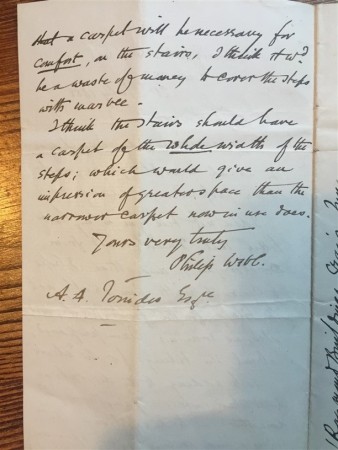 that a carpet will be necessary for
comfort, on the stairs, I think it wd.
be a waste of money to cover the steps
with marble.
I think the stairs should have
a carpet of the whole width of the
steps; which would give an
impression of greater space than the
narrower carpet now in use does.
Yours very truly
Philip Webb.
A. A. Ionides Esqre